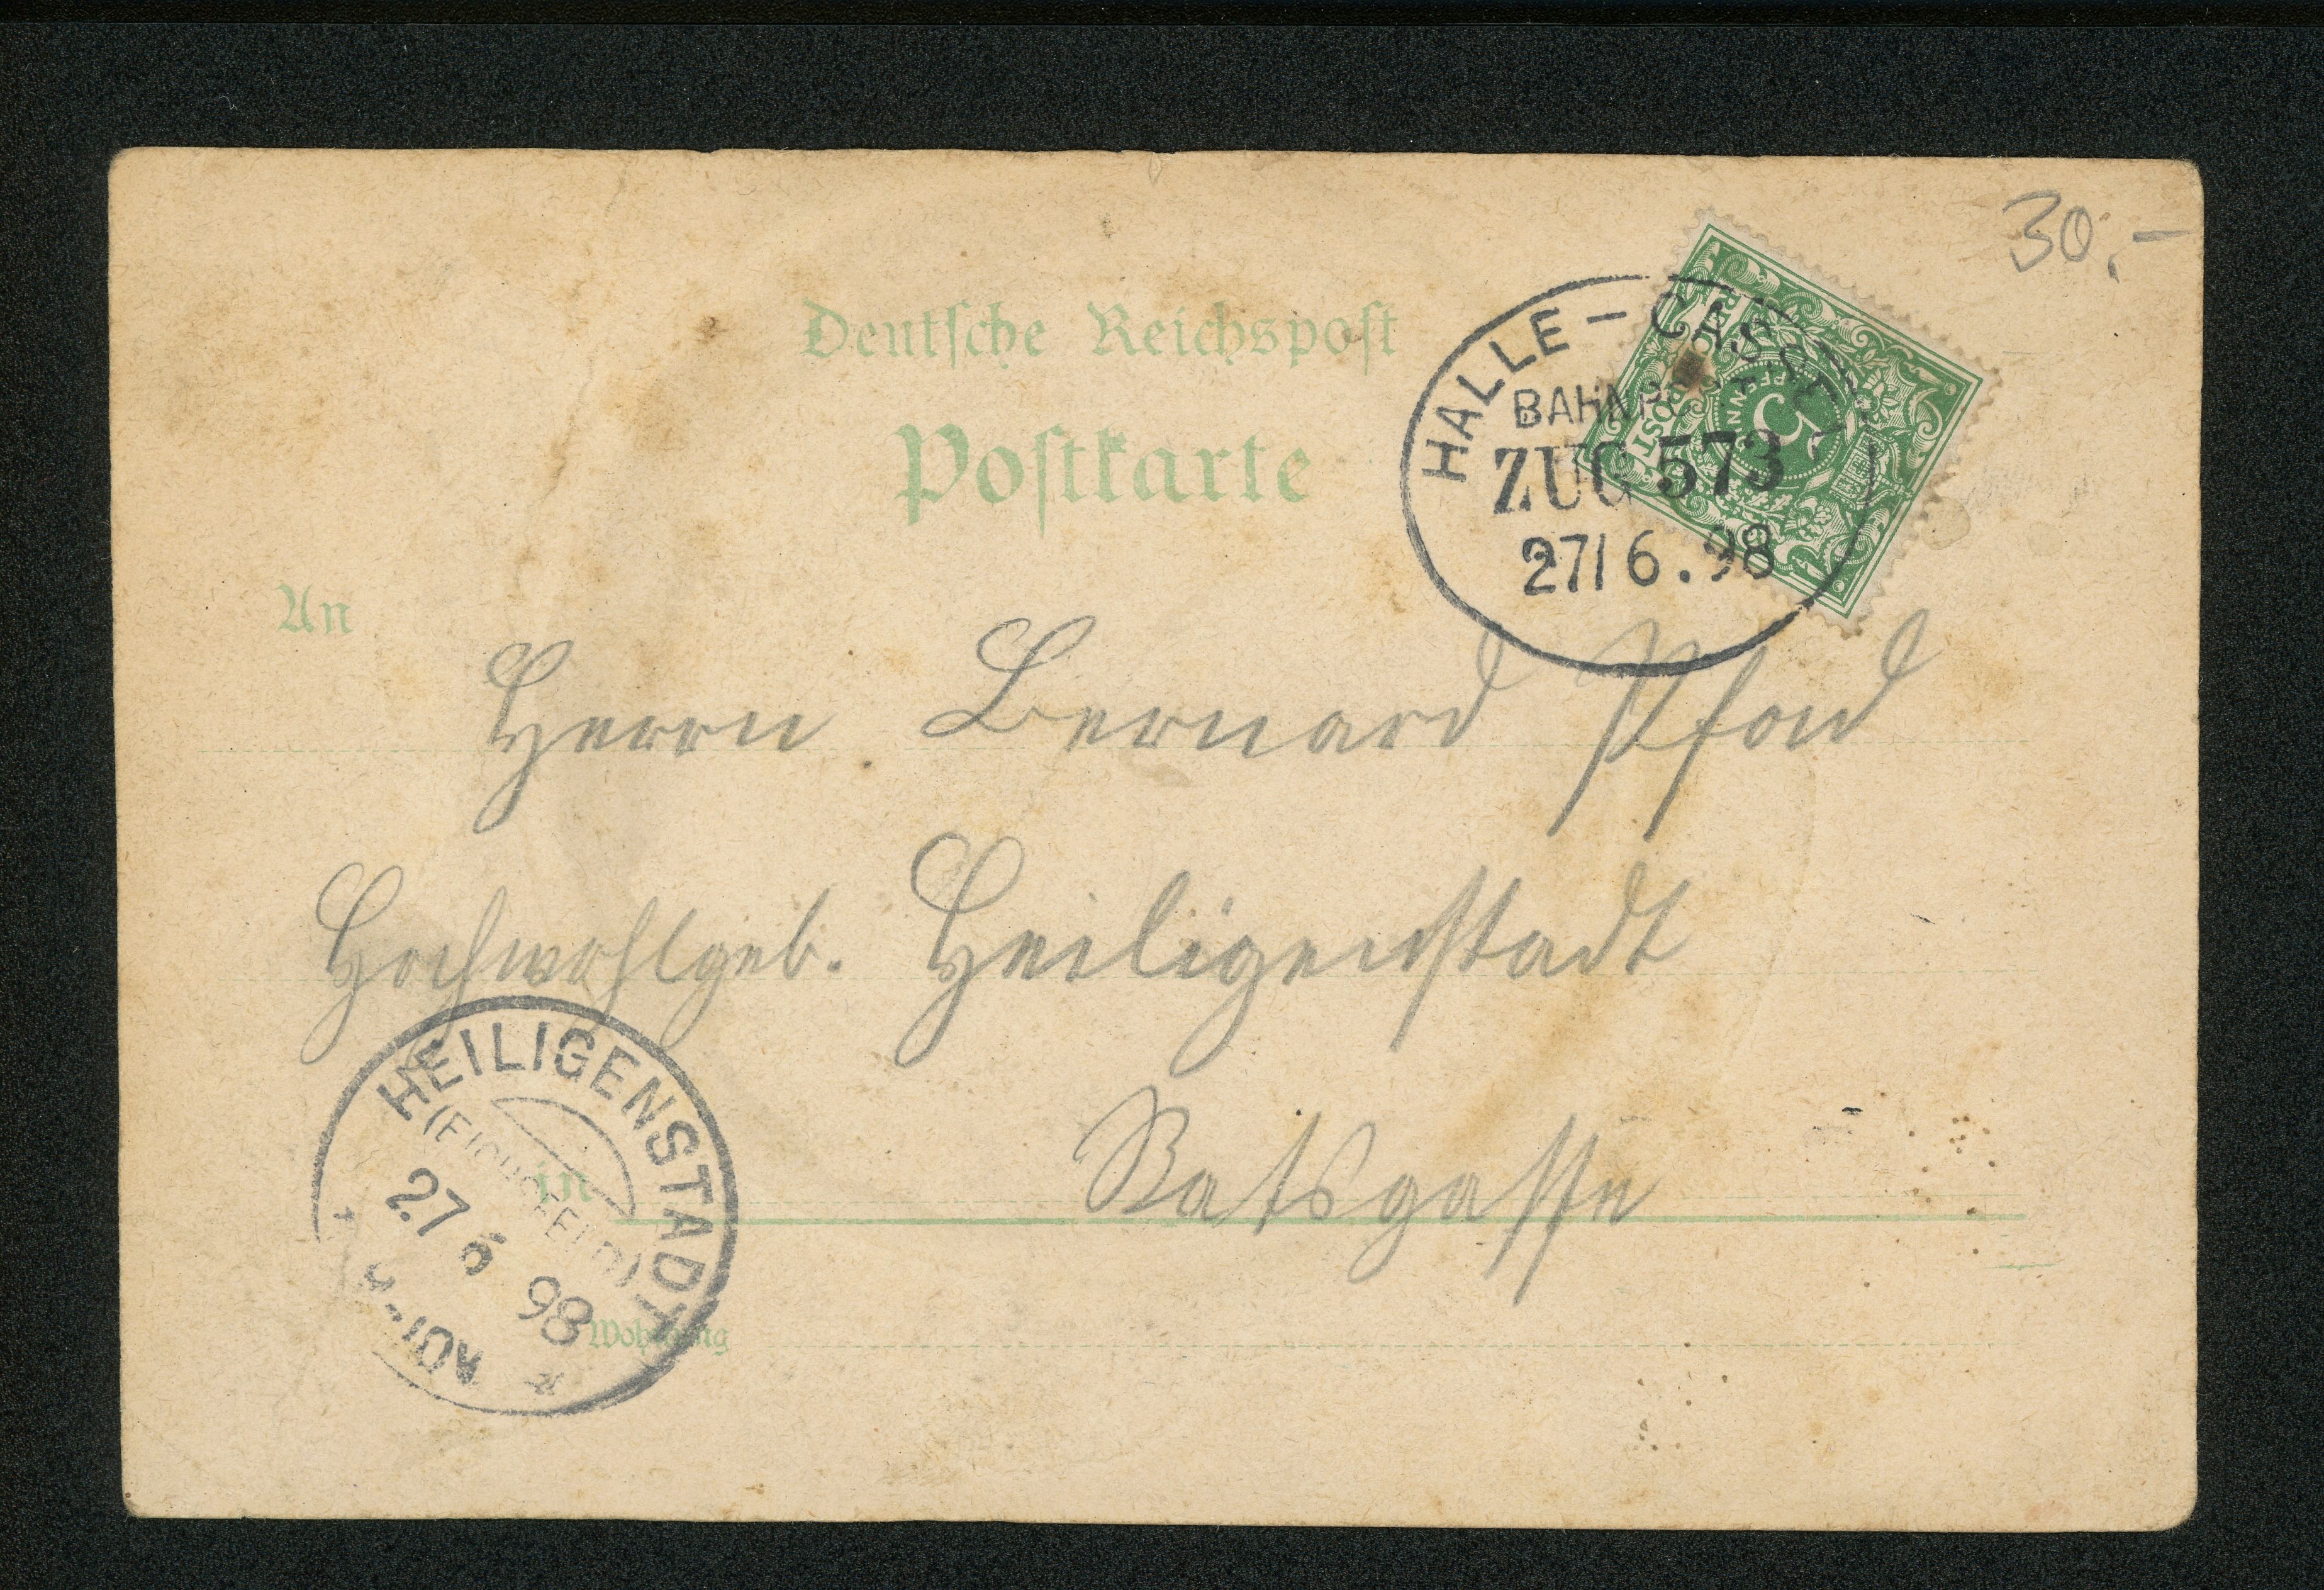 30.-
Deutsche Reichspost
Postkarte
HALLE - CASSEL
BAHNPOST
ZUG 573
27/ 6. 98
REICHSPOST
5
PFENNIG
An
Herrn Bernard
Hochwohlgeb. Heiligenstadt
in Ratsgasse
Wohnung
HEILIGENSTADT
(EICHSFELD)
27 6 98